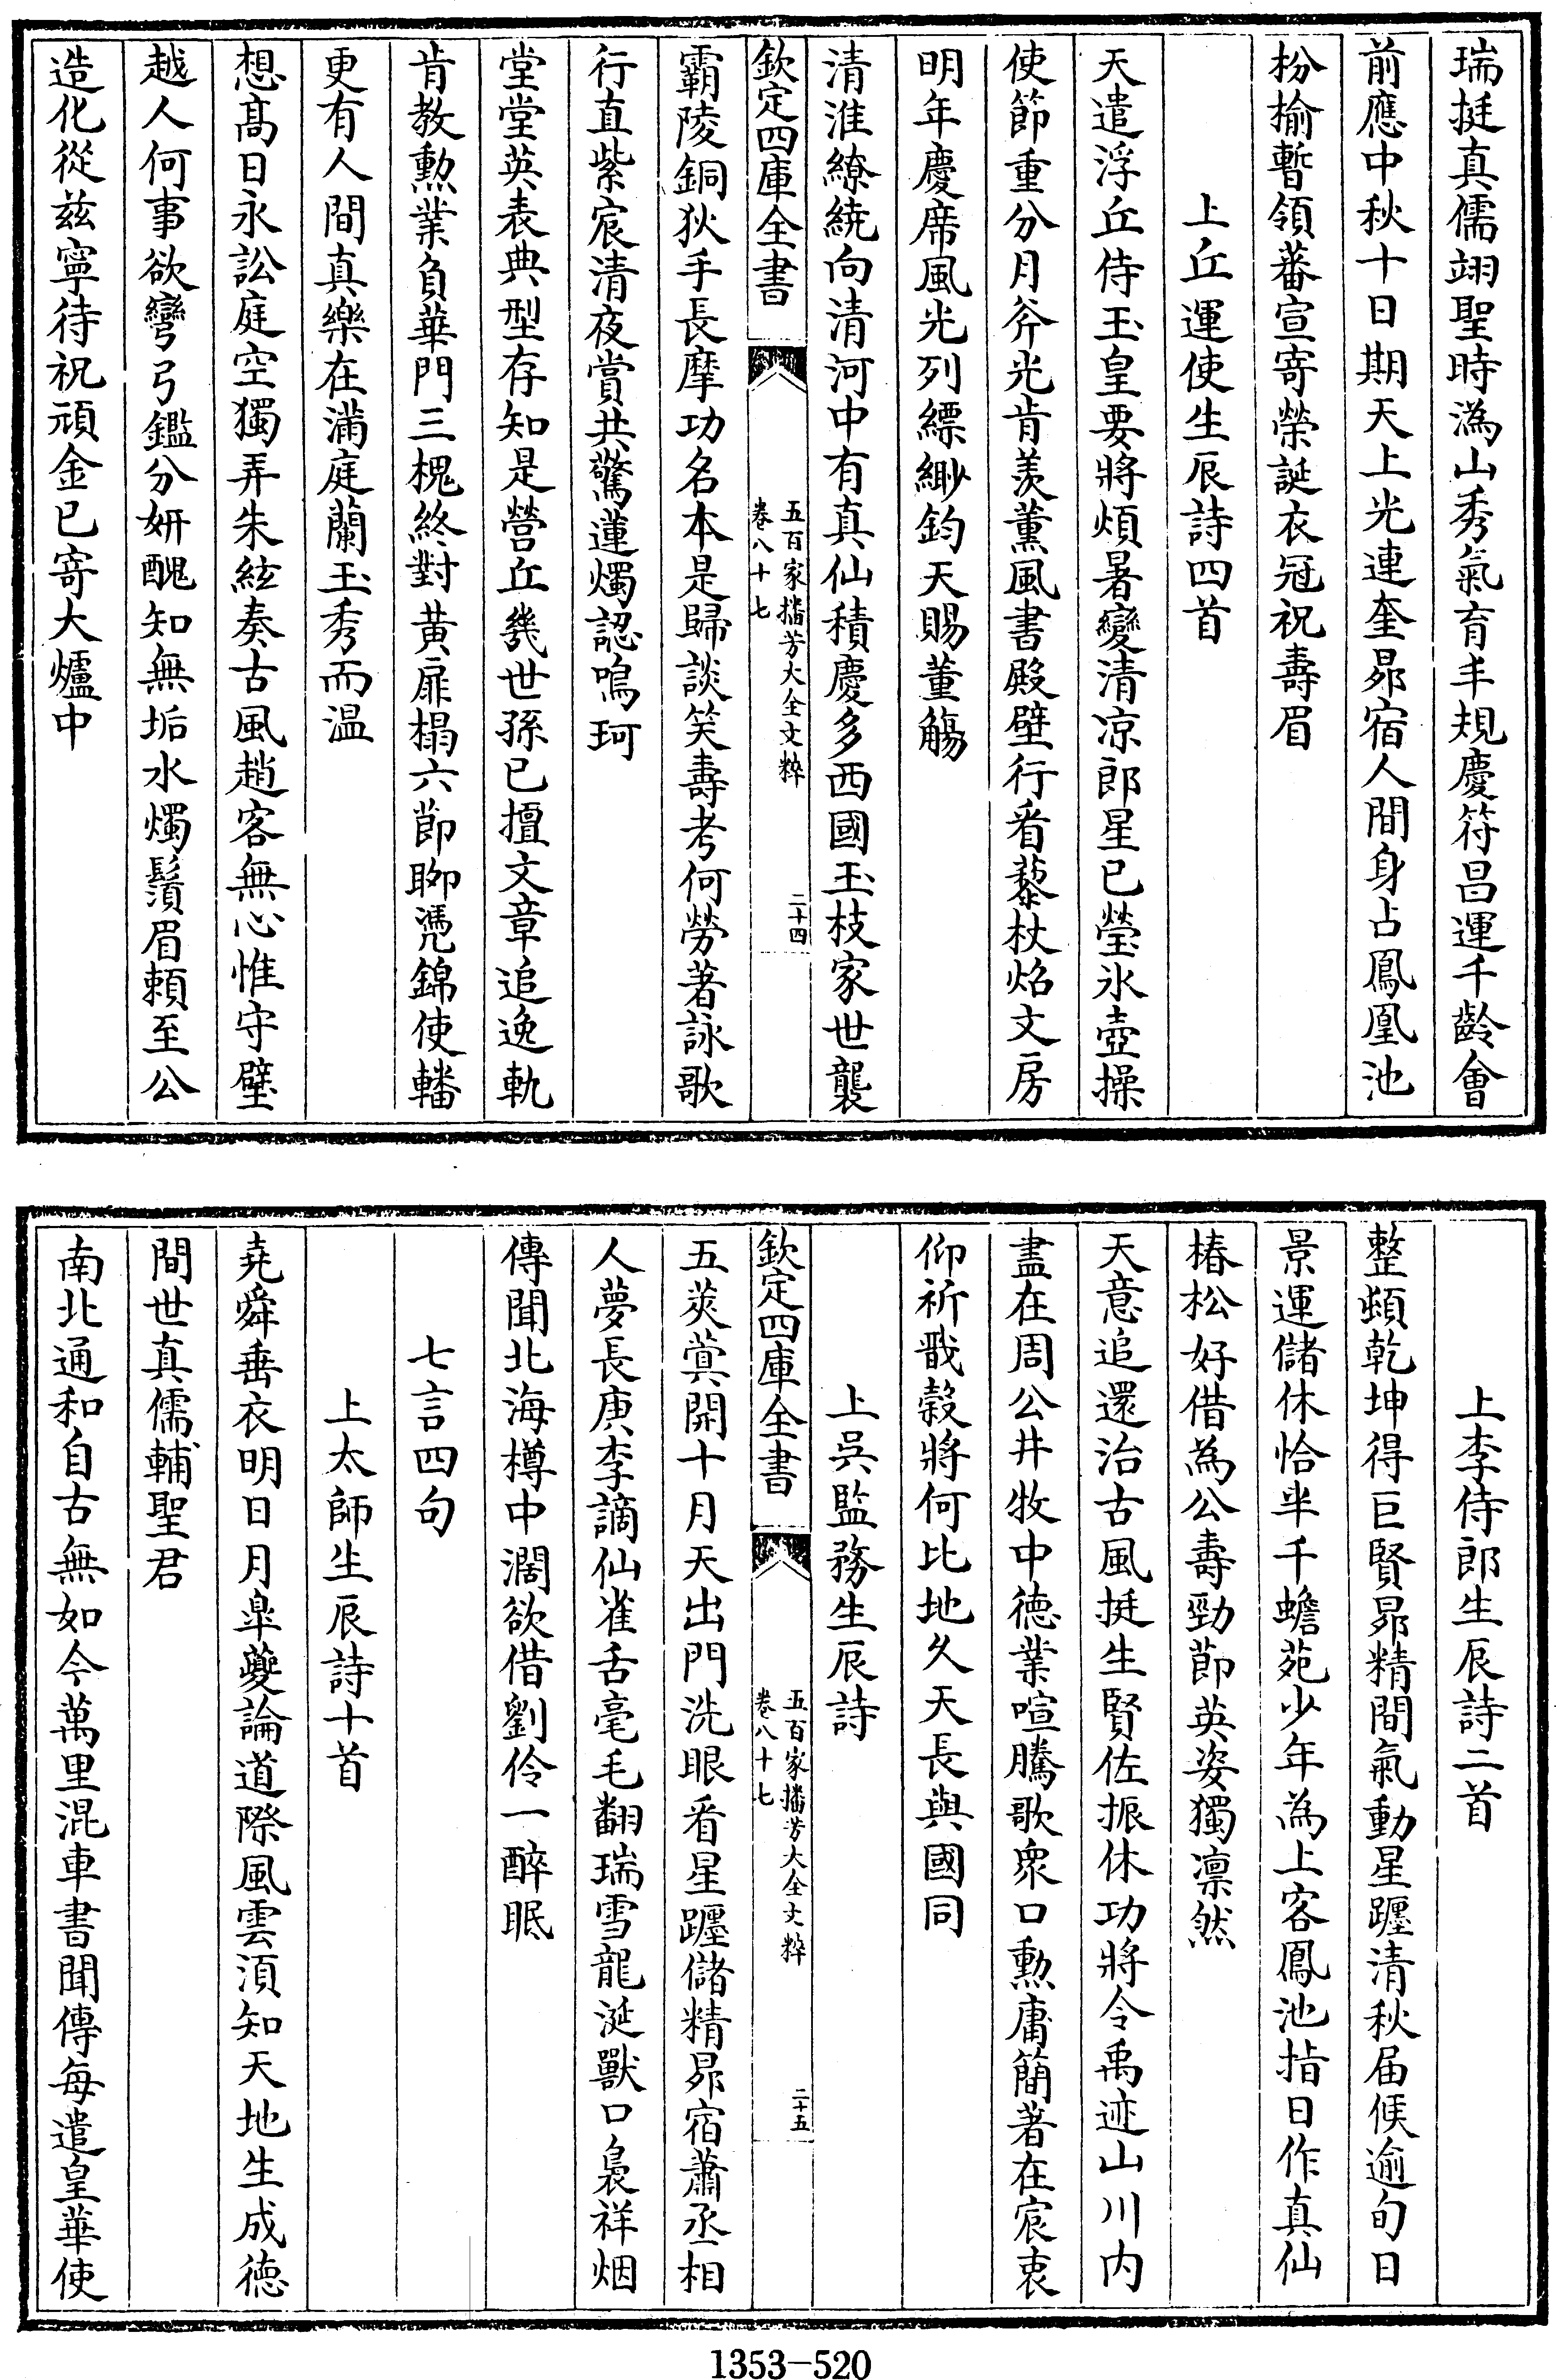 瑞挺真儒翊聖時溈山秀氣育丰規慶符昌運千齡會
前應中秋十日期天上光連奎昴宿人間身占鳳凰池
枌榆暫領蕃宣寄榮誕衣冠祝壽眉
上丘運使生辰詩四首
天遣浮丘侍玉皇要將煩暑變清凉郎星已瑩氷壺操
使節重分月斧光肯羨薰風書殿壁行看藜杖焰文房
明年慶席風光列縹緲鈞天賜董觴
清淮繚繞向清河中有真仙積慶多西國玉枝家世襲
欽定四庫全書
五百家播芳大全文粹
卷八十七
二十四
霸陵銅狄手長摩功名本是歸談笑壽考何勞著詠歌
行直紫宸清夜賞共驚蓮燭認鳴珂
堂堂英表典型存知是營丘幾世孫已擅文章追逸軌
肯教勲業負華門三槐終對黄扉榻六節聊凴錦使轓
更有人間真樂在滿庭蘭玉秀而温
想髙日永訟庭空獨弄朱絃奏古風趙客無心惟守璧
越人何事欲彎弓鑑分妍醜知無垢水燭鬚眉賴至公
造化從兹寧待祝頑金已寄大爐中
上李侍郎生辰詩二首
整頓乾坤得巨賢昴精間氣動星躔清秋届候逾旬日
景運儲休恰半千蟾苑少年為上客鳳池指日作真仙
椿松好借為公壽勁節英姿獨凛然
天意追還治古風挺生賢佐振休功將令禹迹山川内
盡在周公井牧中徳業喧騰歌衆口勲庸簡著在宸衷
仰祈戬榖將何比地久天長與國同
上吳監務生辰詩
欽定四庫全書
五百家播芳大全文粹
卷八十七
二十五
五莢蓂開十月天出門洗眼看星躔儲精昴宿蕭丞相
人夢長庚李謫仙雀舌毫毛翻瑞雪龍涎獸口裊祥烟
傳聞北海樽中濶欲借劉伶一醉眠
七言四句
上太師生辰詩十首
堯舜垂衣明日月臯夔論道際風雲湏知天地生成徳
間世真儒輔聖君
南北通和自古無如今萬里混車書聞傳每遣皇華使
1353-520